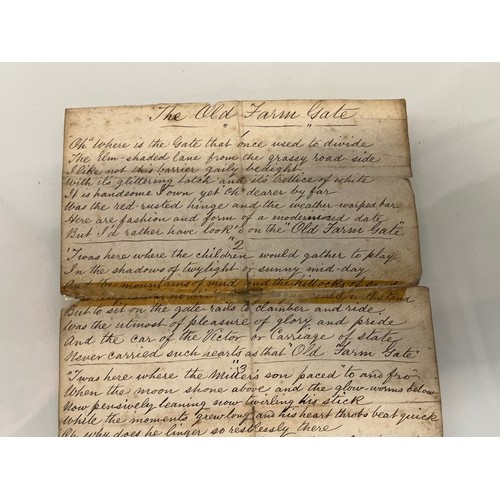 The Old Farm Gate
1
"Oh" where is the Gate that once used to divide
The Elm-shaded lane from the grassy road side
I like not this barrier gaily bedight
With its glittering latch and its trellice of white
It is handsome I own yet "Oh" dearer by far
Was the red-rusted hinge and the weather-warped bar
Here are fashion and form of a modernised date
But I'd rather have look'd on the "Old Farm Gate"
"2
'Twas here where the children would gather to play
In the shadows of twylight or sunny mid-day
And the mountains of mud and the hillocks of
But to sit on the gate rails to clamber and ride
Was the utmost of pleasure of glory and pride
And the car of the Victor or Carriage of state
Never carried such hearts as that "Old Farm Gate"
"3
'Twas here where the Miller's son paced "to and fro
When the moon shone above and the glow-worms below
Now pensively leaning now twirling his stick
While the moments grew long and his heart throbs beat quick
Oh why does he linger so restlessly there